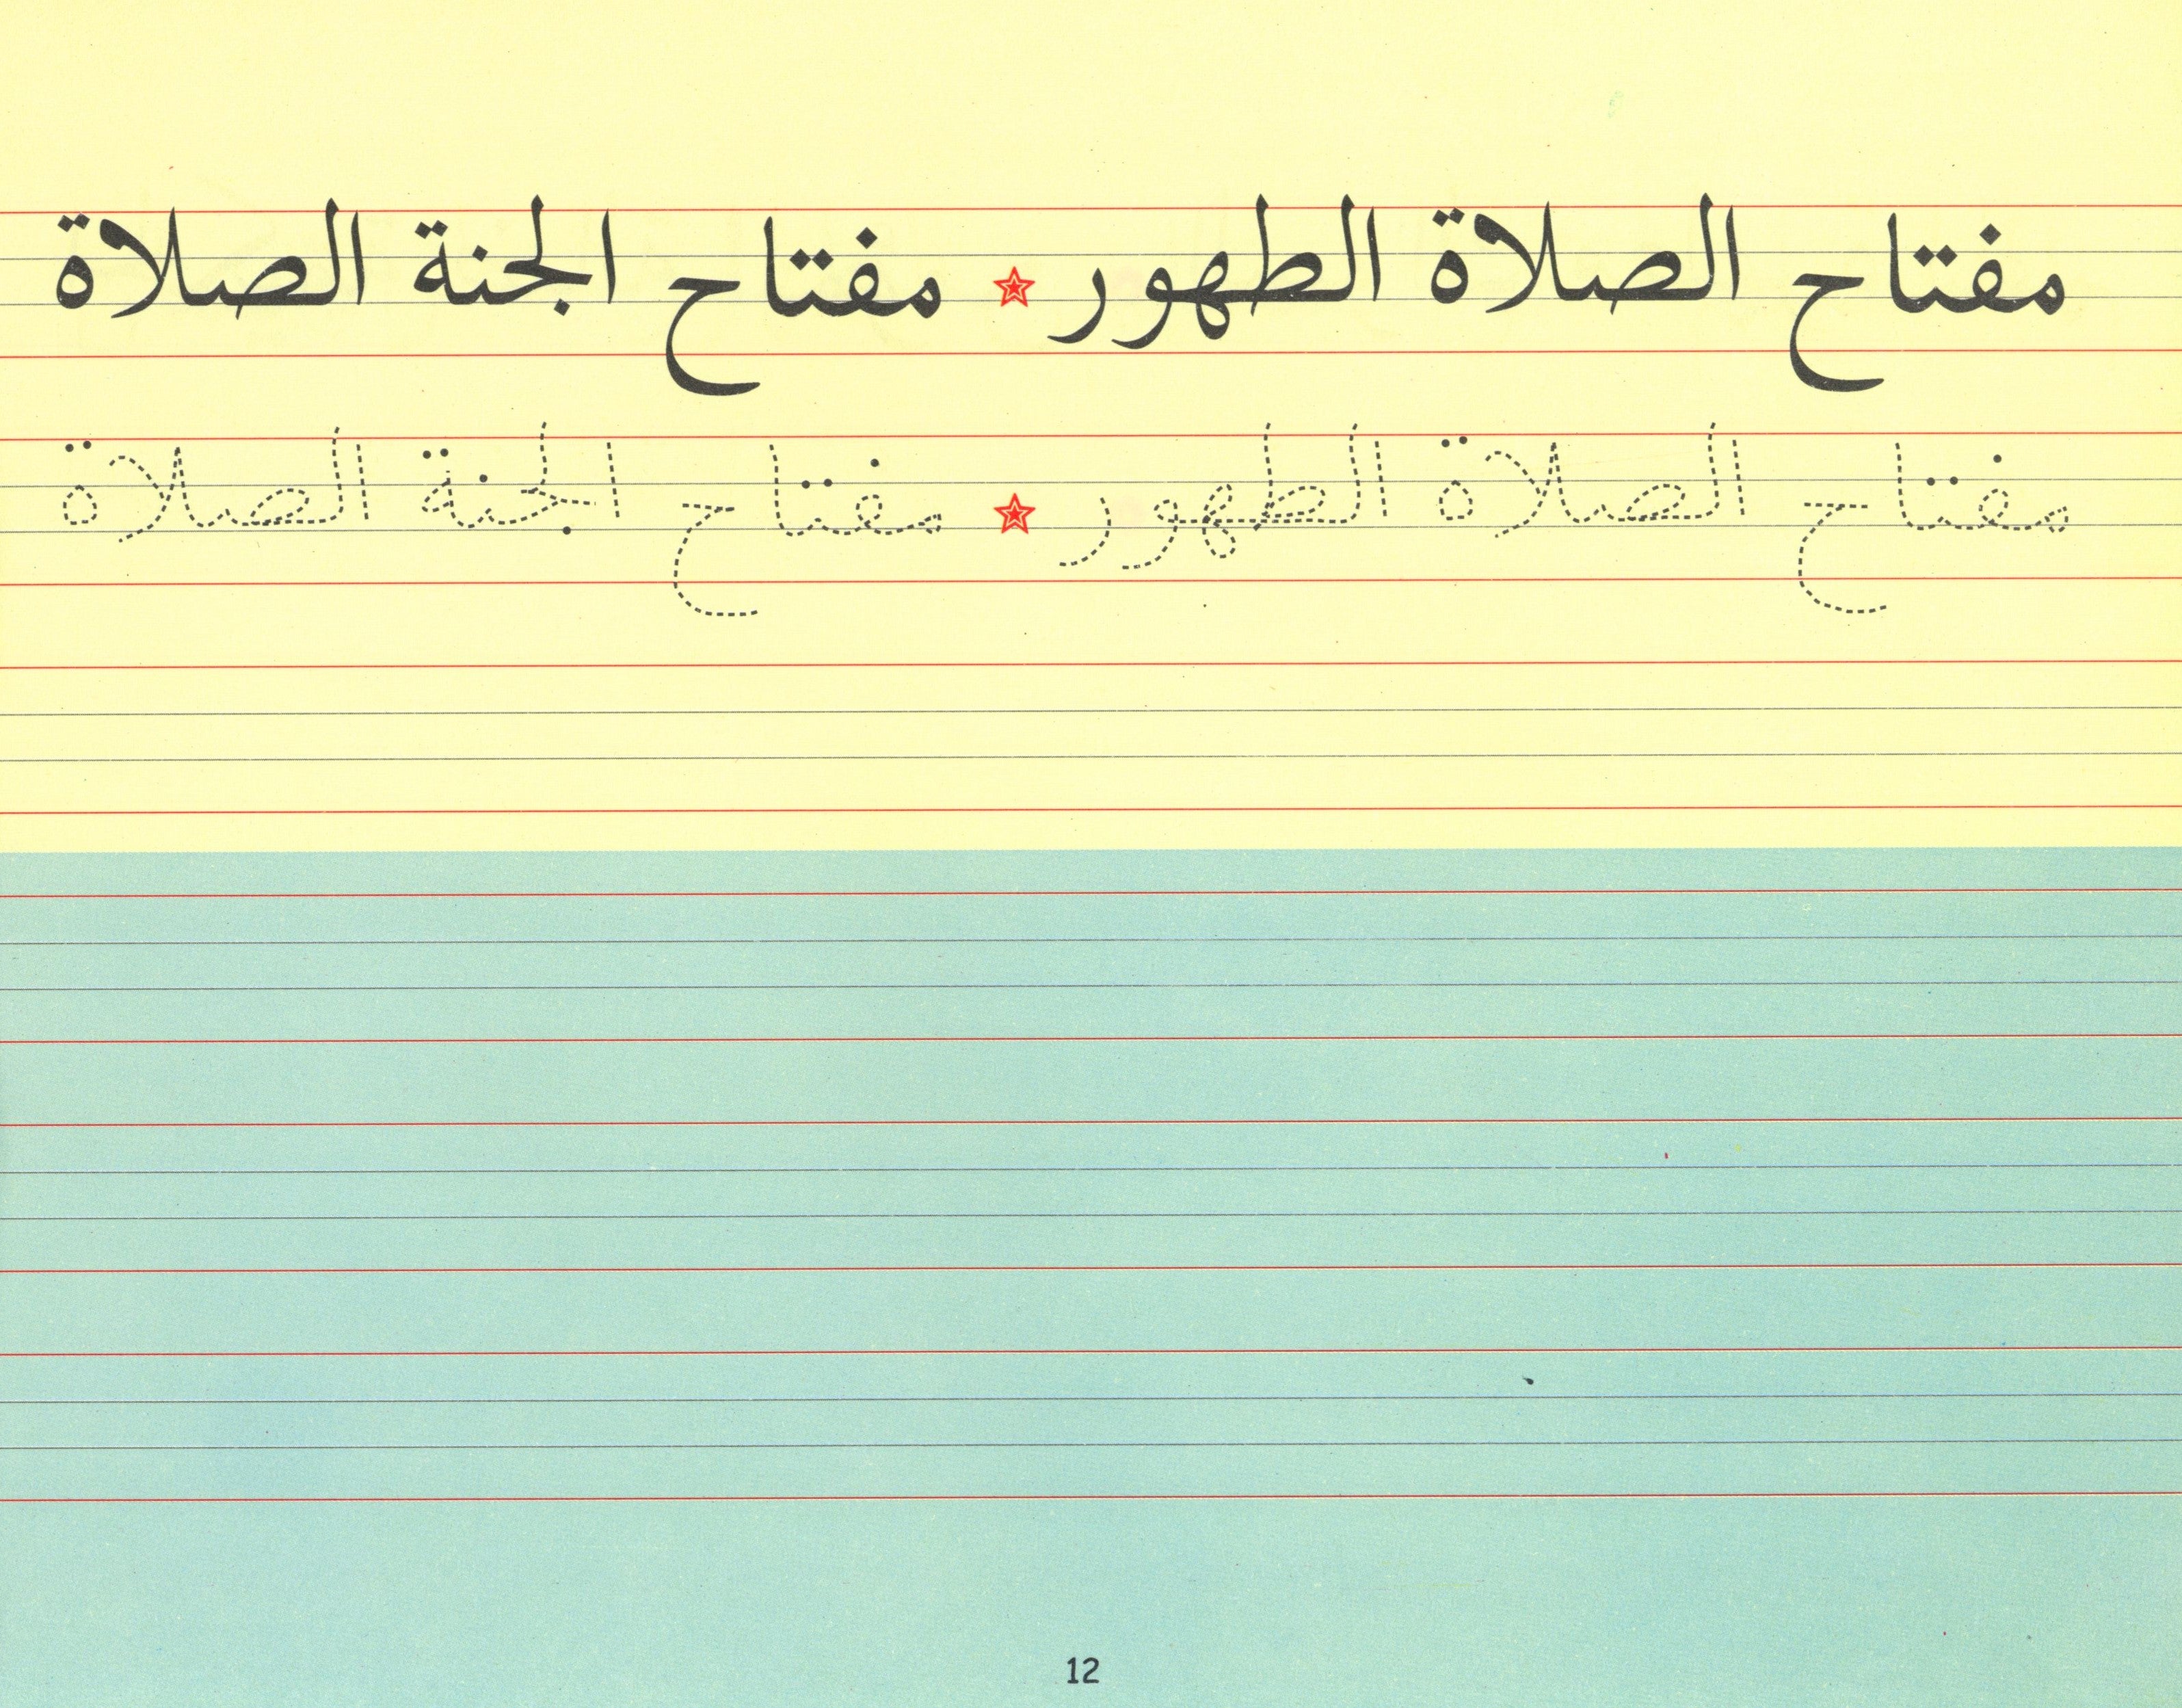 مفتاح الصلاة الطهور ☆ مفتاح الجنة الصلاة
مفتاح الصلاة الطهور ☆ مفتاح الجنة الصلاة
12